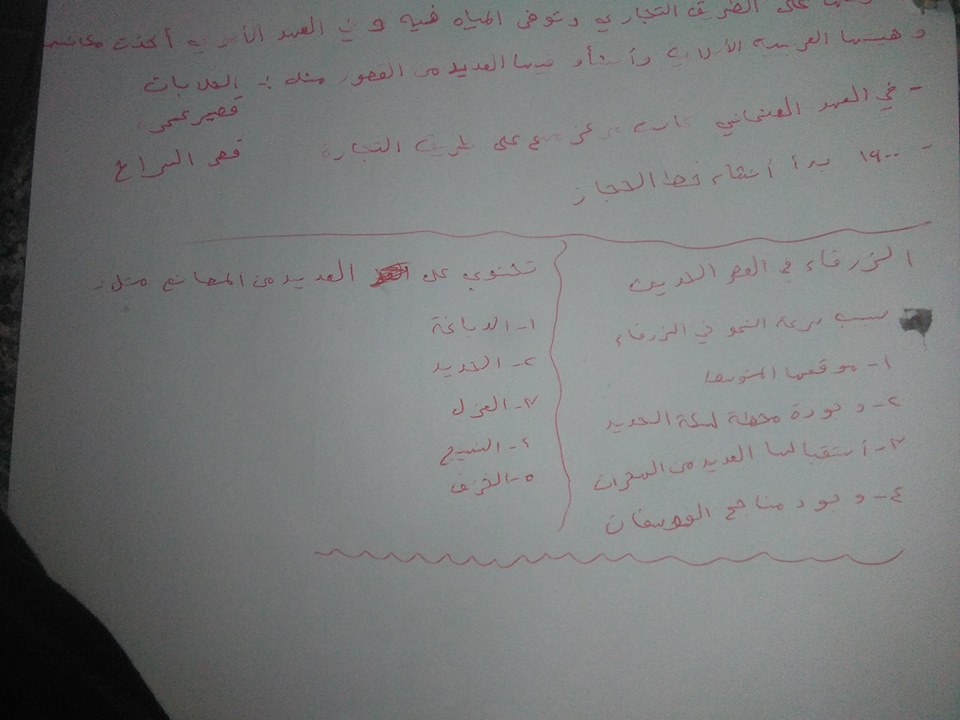 على الطريق التجاري وتوفر المياه فيه وفي العهد الأموي أخذت مكانتها
العربية وأنشأ فيها العديد من القصور مثل : الحلابات
قصير عمر
- في العهد العثماني كانت مركز مهم على طريق التجارة
- ١٩٠٠ بدأ أنشاء خط الحجاز
الزرقاء في العصر الحديث
سبب سرعة النمو في الزرقاء
١- موقعها المتوسط
٢- وجود محطة لسكة الحديد
٣- أستقبالها العديد من الهجرات
٤- وجود مناجم الفوسفات
تحتوي على العديد من المصانع مثل:
١- الدباغة
٢- الحديد
٣- الغزل
٤- النسيج
٥- الخزف